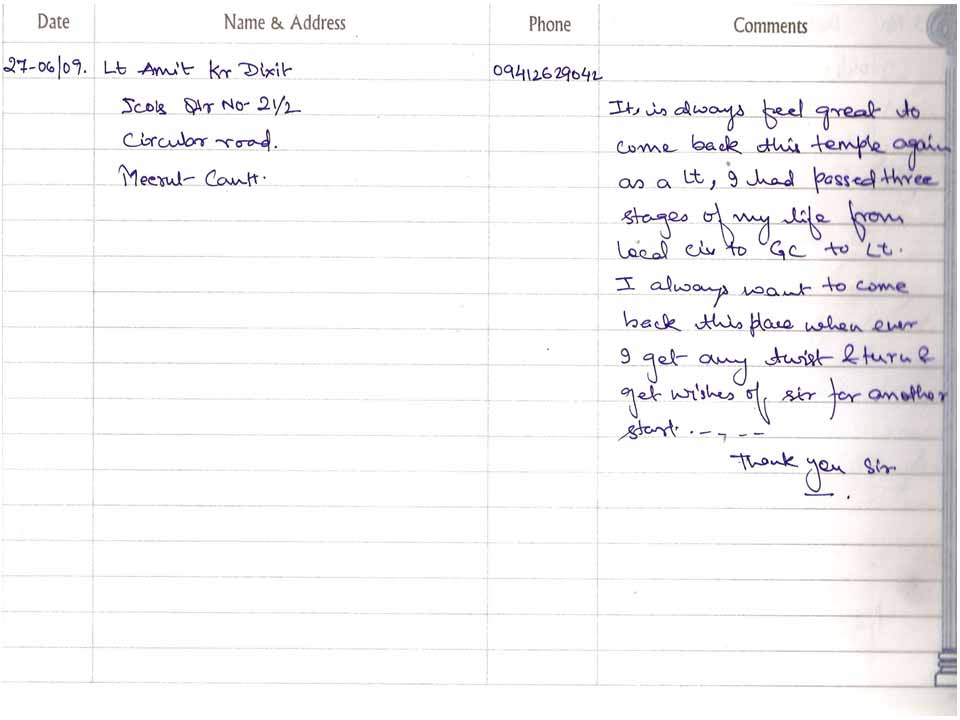 Date Name & Address Phone Comments
27-06/09. Lt Amit Kr Dixit 09412629042
JCOs Qtr No- 21/2
Circular road.
Meerut- Cantt.
It, is always feel great to
come back this temple again
as a Lt, I had passed three
stages of my life from
local civ to GC to Lt.
I always want to come
back this place when ever
I get any twist & turn &
get wishes of sir for another
start. - - , - -
Thank you Sir